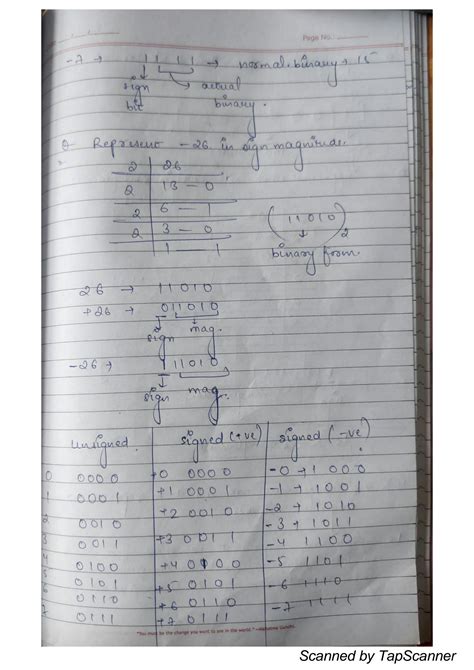 Page No.:
-7 → 1111 → normal binary → 15
sign actual
bit binary.
Q Represent -26 in sign magnitude.
2 26
2 13 - 0
2 6 - 1
2 3 - 0
1 - 1
(11010)2
binary form
26 → 11010
+26 → 011010
sign mag.
-26 → 1 11010
sign mag.
unsigned signed (+ve) signed (-ve)
0 0000 +0 0000 -0 → 1000
1 0001 +1 0001 -1 → 1001
2 0010 +2 0010 -2 → 1010
3 0011 +3 0011 -3 → 1011
4 0100 +4 0100 -4 1100
5 0101 +5 0101 -5 1101
6 0110 +6 0110 -6 1110
7 0111 +7 0111 -7 1111
"You must be the change you want to see in the world." - Mahatma Gandhi
Scanned by TapScanner